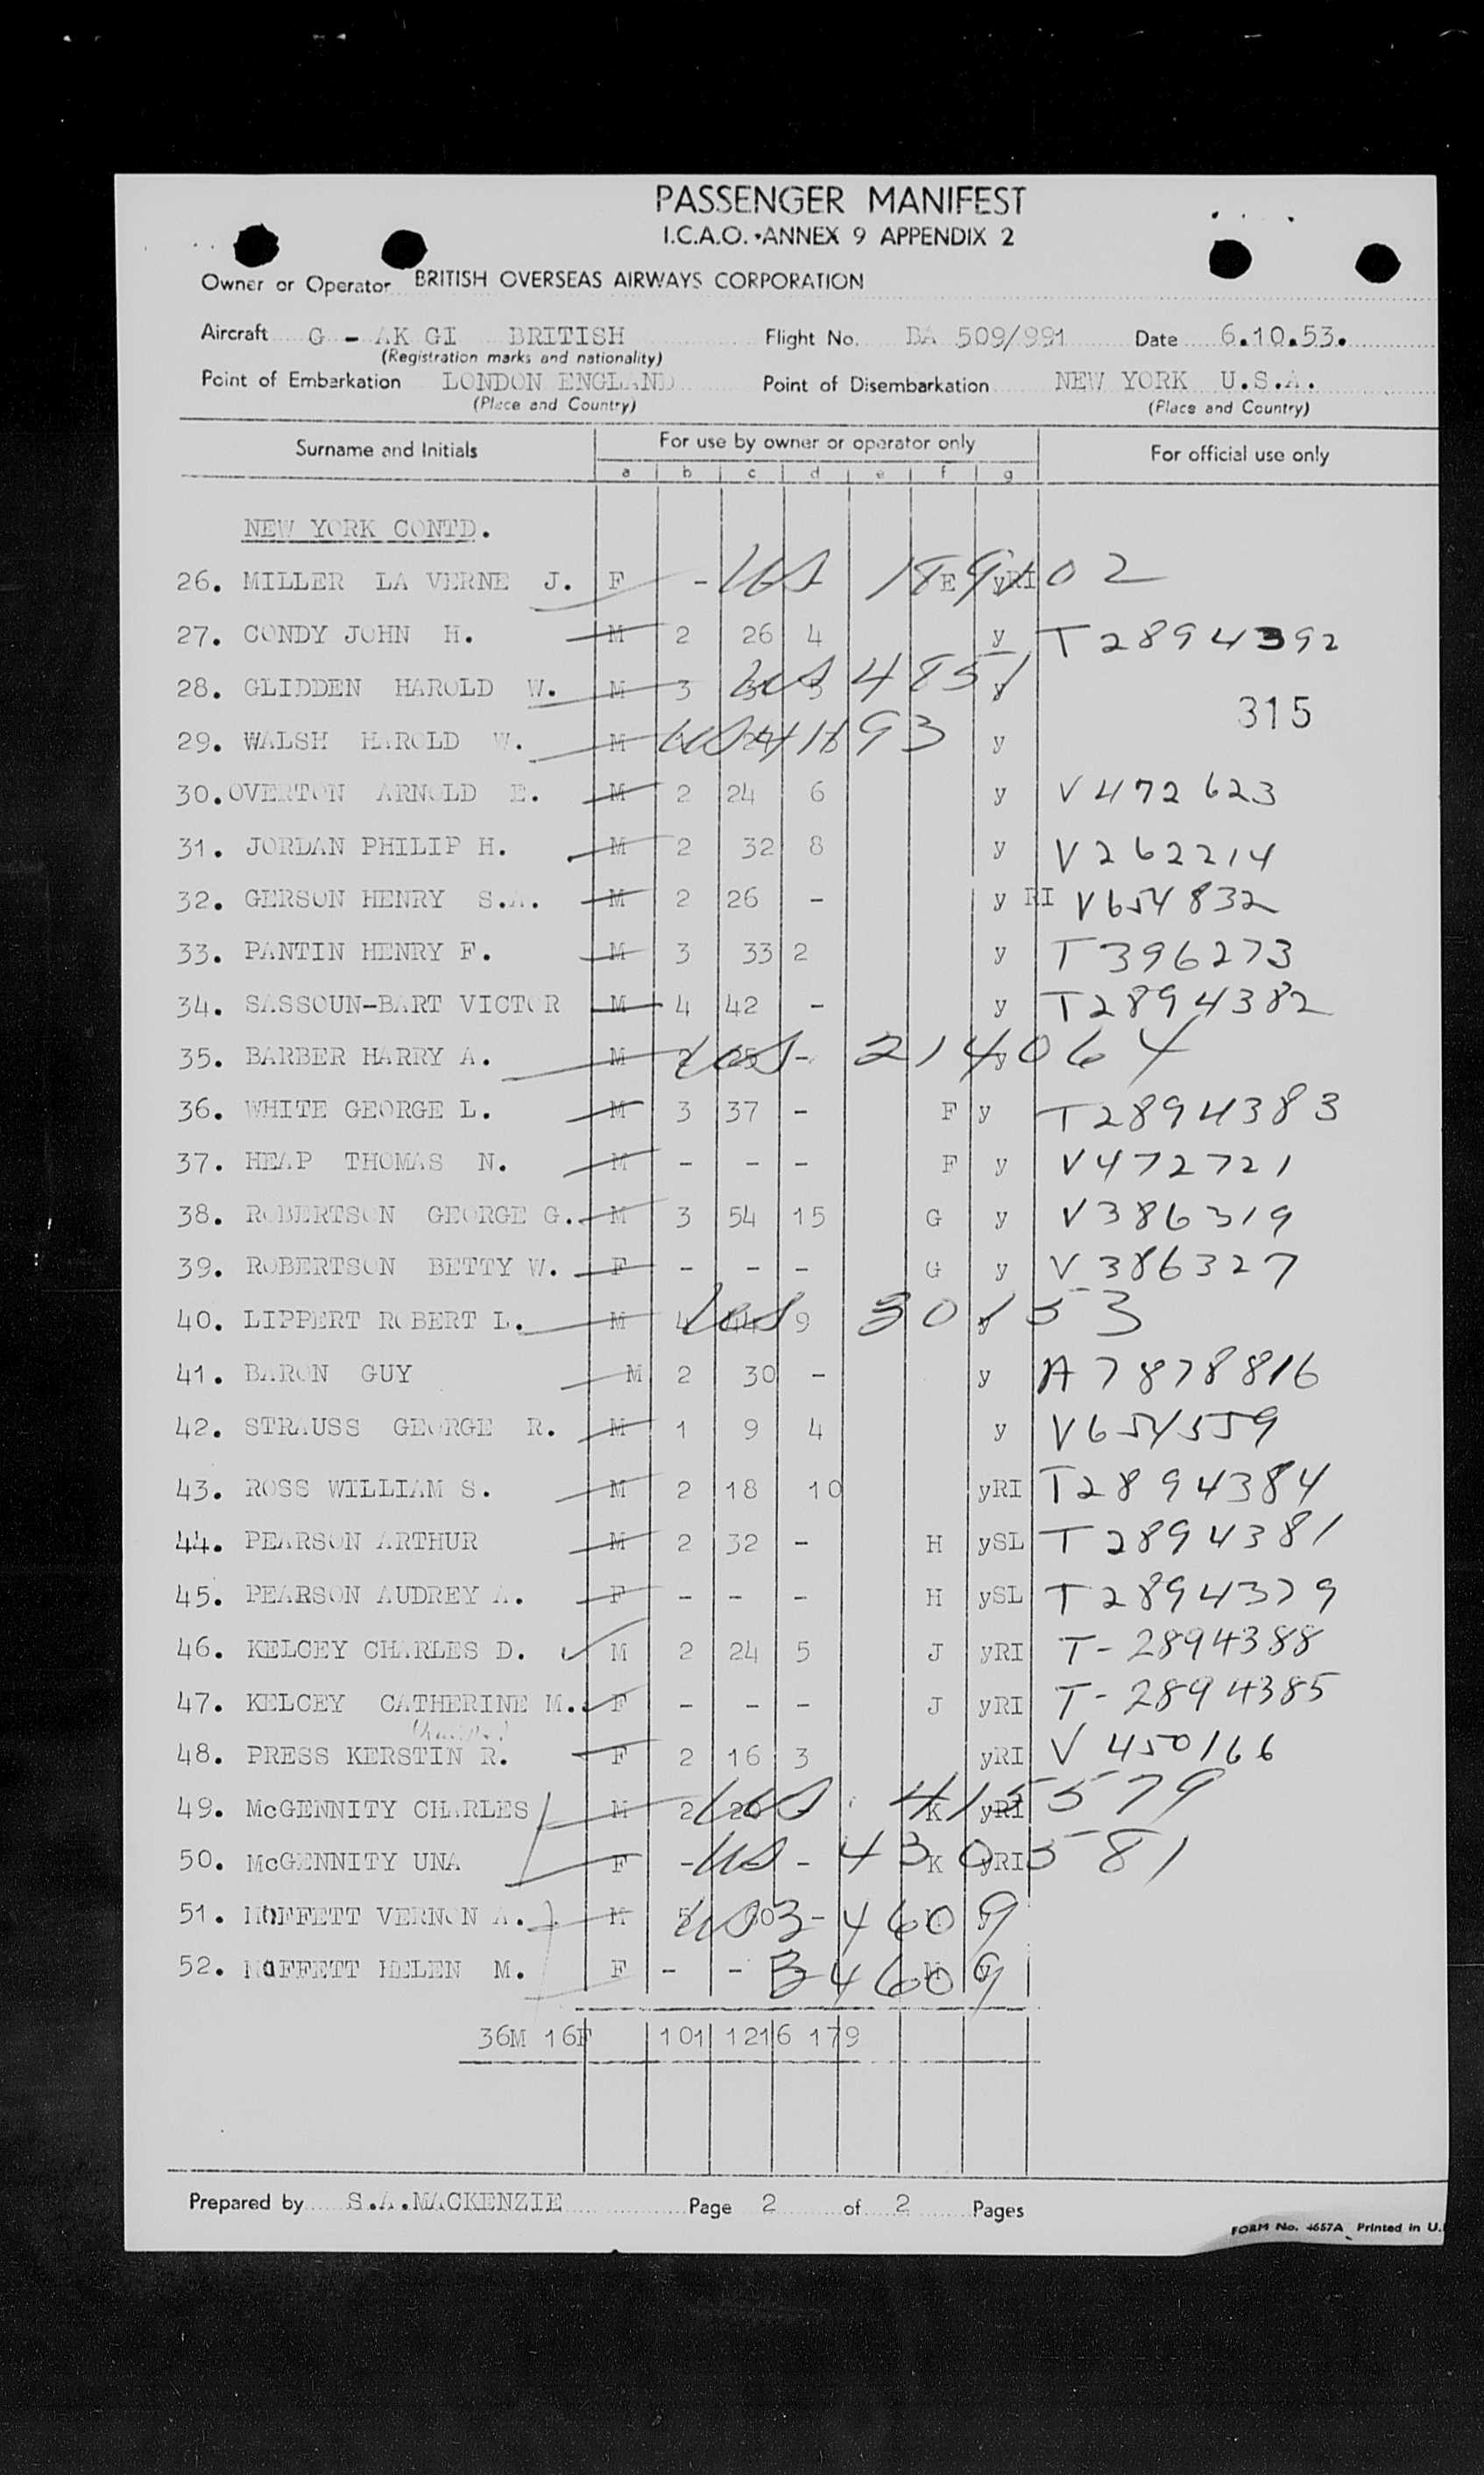 PASSENGER MANIFEST
I.C.A.O. • ANNEX 9 APPENDIX 2
Owner or Operator BRITISH OVERSEAS AIRWAYS CORPORATION
Aircraft G - AK GI BRITISH Flight No. BA 509/991 Date 6.10.53.
(Registration marks and nationality)
Point of Embarkation LONDON ENGLAND Point of Disembarkation NEW YORK U.S.A.
(Place and Country) (Place and Country)
Surname and Initials For use by owner or operator only For official use only
a b c d e f g
NEW YORK CONTD.
26. MILLER LA VERNE J. F - US 189102 E yRI
27. CONDY JOHN H. M 2 26 4 y T2894392
28. GLIDDEN HAROLD W. M 3 US 4851 y
315
29. WALSH HAROLD W. M US 41693 y
30. OVERTON ARNOLD E. M 2 24 6 y V472623
31. JORDAN PHILIP H. M 2 32 8 y V262214
32. GERSON HENRY S.A. M 2 26 - y RI V654832
33. PANTIN HENRY F. M 3 33 2 y T396273
34. SASSOUN-BART VICTOR M 4 42 - y T2894382
35. BARBER HARRY A. M 2 25 - US 214064 y
36. WHITE GEORGE L. M 3 37 - F y T2894383
37. HEAP THOMAS N. M - - - F y V472721
38. ROBERTSON GEORGE G. M 3 54 15 G y V386319
39. ROBERTSON BETTY W. F - - - G y V386327
40. LIPPERT ROBERT L. M 4 44 9 US 30153 y
41. BARON GUY M 2 30 - y A7878816
42. STRAUSS GEORGE R. M 1 9 4 y V654559
43. ROSS WILLIAM S. M 2 18 10 yRI T2894384
44. PEARSON ARTHUR M 2 32 - H ySL T2894381
45. PEARSON AUDREY A. F - - - H ySL T2894379
46. KELCEY CHARLES D. M 2 24 5 J yRI T-2894388
47. KELCEY CATHERINE M. F - - - J yRI T-2894385
48. PRESS KERSTIN R. F 2 16 3 yRI V450166
49. McGENNITY CHARLES M 2 20 US 415579 K yRI
50. McGENNITY UNA F - US - 430581 K yRI
51. MOFFETT VERNON A. M 5 60 - US 34609
52. MOFFETT HELEN M. F - - 34609 M y
36M 16F 101 1216 179
Prepared by S.A.MACKENZIE Page 2 of 2 Pages
FORM No. 4657A Printed in U.